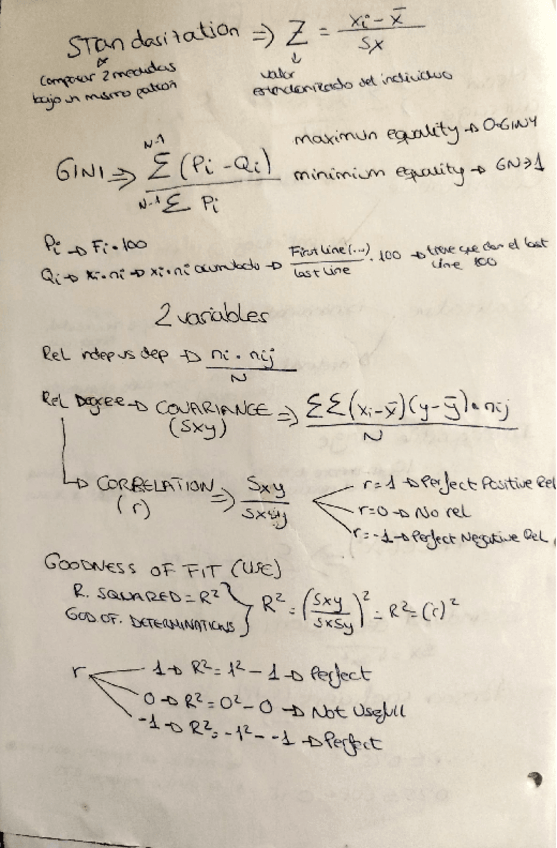 Standarization => Z = xi - x̄ / Sx
comparar 2 medidas bajo un mismo patron
valor estandarizado del individuo
GINI => N-1 Σ (Pi - Qi) / N-1 Σ Pi
maximun equality → 0-GINI
minimium equality → GN→1
Pi → Fi · 100
Qi → xi·ni → xi·ni acumulado → First Line (...) / last Line · 100 → tiene que dar el last Line 100
2 variables
Rel indep vs dep → ni · nij / N
Rel Degree → COVARIANCE (Sxy) => ΣΣ(xi - x̄)(y - ȳ) · nij / N
CORRELATION (r) => Sxy / SxSy
r=1 → Perfect Positive Rel
r=0 → No rel
r=-1 → Perfect Negative Rel.
GOODNESS OF FIT (USE)
R. SQUARED = R²
GOD. OF. DETERMINATIONS
R² = (Sxy / SxSy)² = R² = (r)²
r
1 → R² = 1² - 1 → Perfect
0 → R² = 0² - 0 → Not Usefull
-1 → R² = -1² - -1 → Perfect